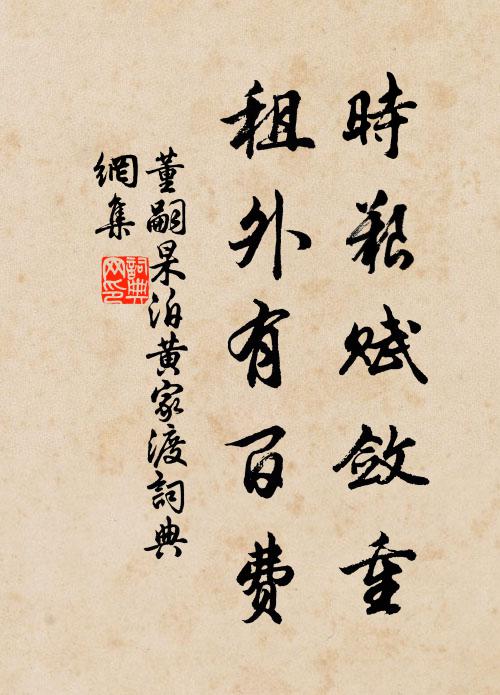 時艱賦斂重
租外有百費
董嗣杲泊黄家渡詞典
網集
詞典網印